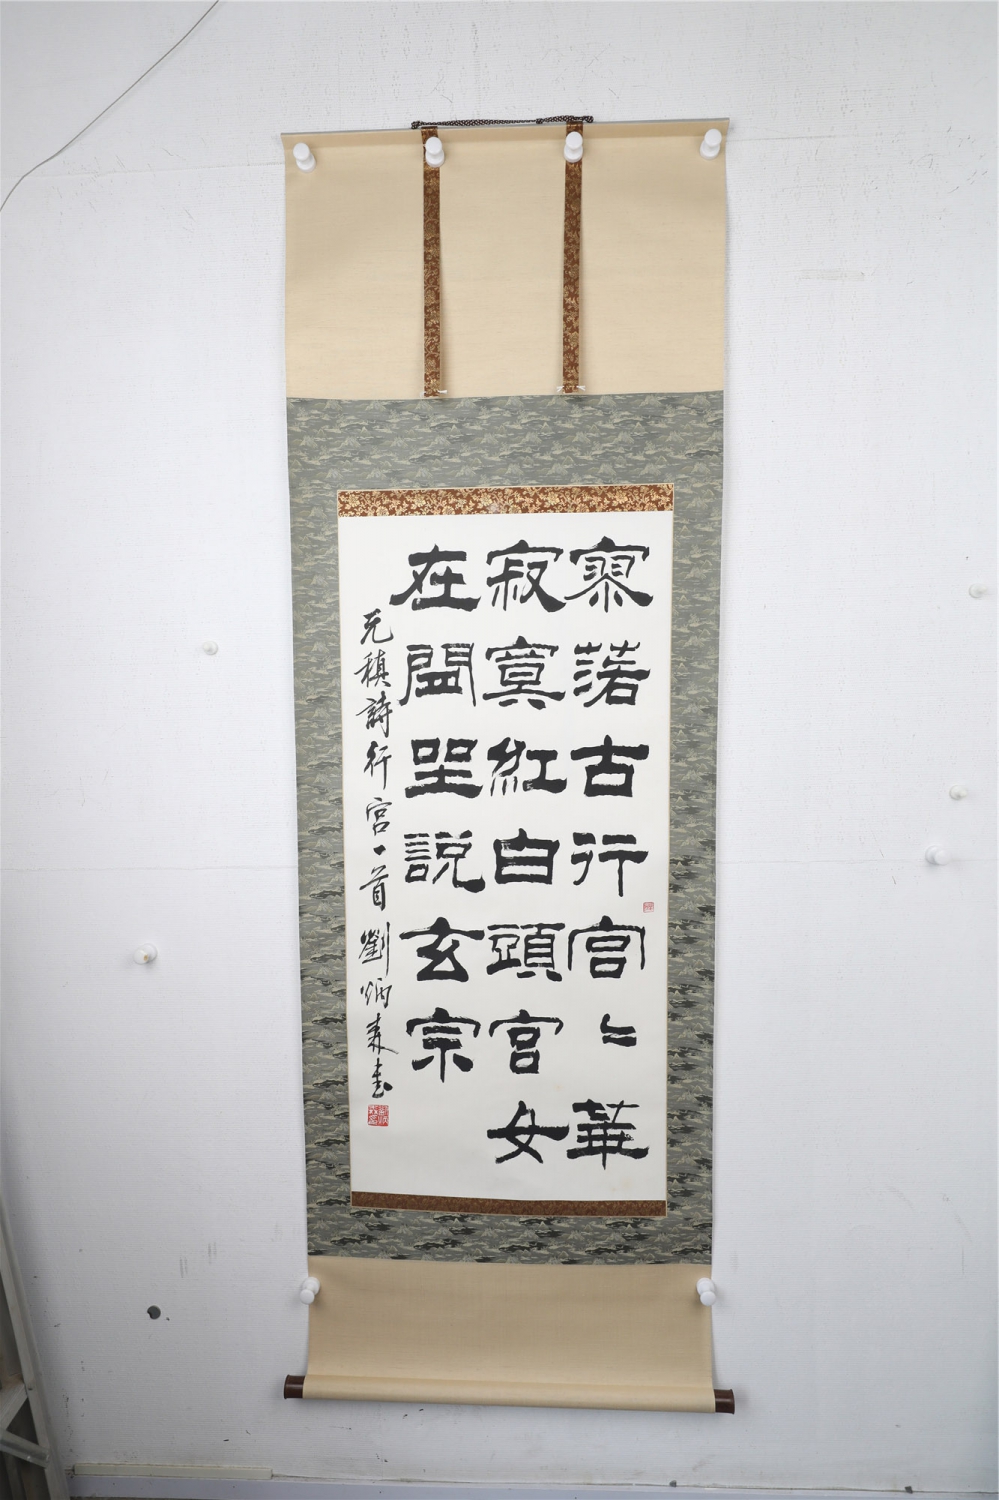 寥落古行宮〻華
寂寞紅白頭宮女
在閒坐說玄宗
元稹詩行宮一首 劉炳森書